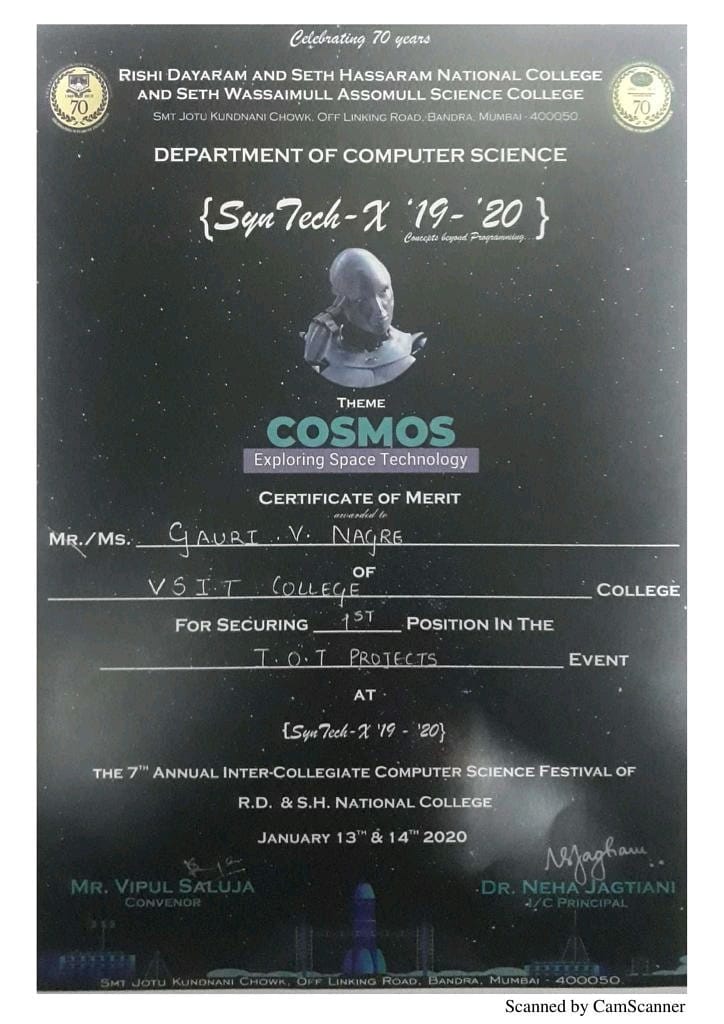 Celebrating 70 years
RISHI DAYARAM AND SETH HASSARAM NATIONAL COLLEGE
AND SETH WASSAIMULL ASSOMULL SCIENCE COLLEGE
SMT JOTU KUNDNANI CHOWK, OFF LINKING ROAD, BANDRA, MUMBAI - 400050.
70
70
DEPARTMENT OF COMPUTER SCIENCE
{SynTech-X '19-'20}
Concepts beyond Programming...
THEME
COSMOS
Exploring Space Technology
CERTIFICATE OF MERIT
awarded to
MR./MS. GAURI . V. NAGRE
OF
VSI.T COLLEGE COLLEGE
FOR SECURING 1ST POSITION IN THE
T.O.T PROJECTS EVENT
AT
{SynTech-X '19 - '20}
THE 7TH ANNUAL INTER-COLLEGIATE COMPUTER SCIENCE FESTIVAL OF
R.D. & S.H. NATIONAL COLLEGE
JANUARY 13TH & 14TH 2020
NSJagtiani
MR. VIPUL SALUJA
CONVENOR
DR. NEHA JAGTIANI
I/C PRINCIPAL
SMT JOTU KUNDNANI CHOWK, OFF LINKING ROAD, BANDRA, MUMBAI - 400050.
Scanned by CamScanner